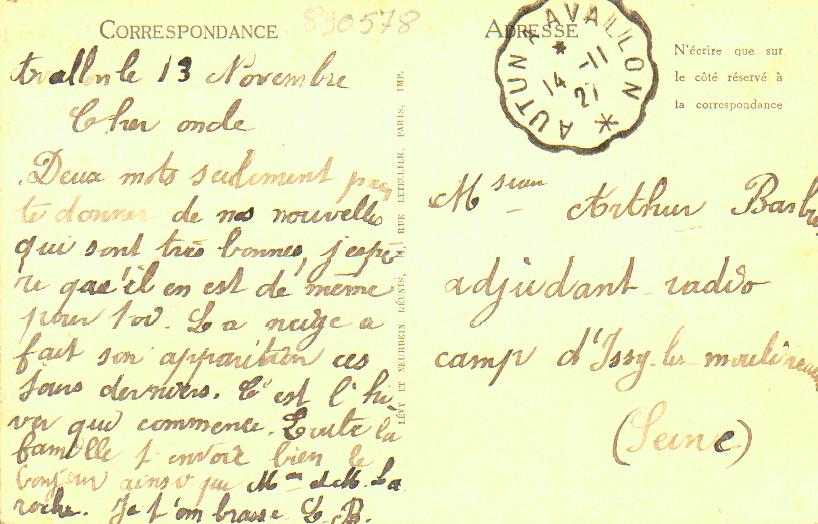 CORRESPONDANCE
890578
Avallon le 13 Novembre
Cher oncle
Deux mots seulement pour
te donner de nos nouvelles
qui sont très bonnes, j'espè
re que'il en est de même
pour toi. La neige a
fait son apparition ces
jours derniers. C'est l'hi
ver qui commence. Toute la
famille t'envoie bien le
bonjour ainsi que Mme et M. La
roche. Je t'em brasse. L. B.
LÉVY ET NEURDEIN RÉUNIS, RUE LETELLIER, PARIS, IMP.
ADRESSE
AUTUN A AVALLON
14 -11
27
N'écrire que sur
le côté réservé à
la correspondance
Msieur Arthur
adjudant radio
camp d'Issy-les-moulineaux
(Seine)